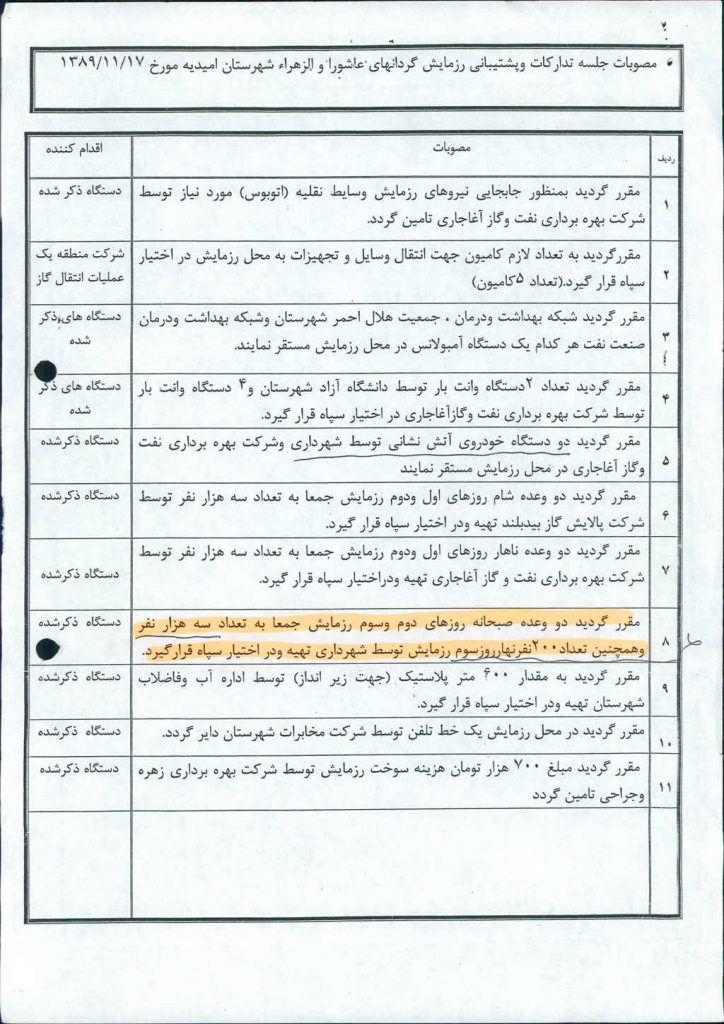 ۲
• مصوبات جلسه تدارکات وپشتیبانی رزمایش گردانهای عاشورا و الزهراء شهرستان امیدیه مورخ ۱۳۸۹/۱۱/۱۷
ردیف مصوبات اقدام کننده
۱ مقرر گردید بمنظور جابجایی نیروهای رزمایش وسایط نقلیه (اتوبوس) مورد نیاز توسط دستگاه ذکر شده
شرکت بهره برداری نفت وگاز آغاجاری تامین گردد.
۲ مقررگردید به تعداد لازم کامیون جهت انتقال وسایل و تجهیزات به محل رزمایش در اختیار شرکت منطقه یک
سپاه قرار گیرد.(تعداد ۵کامیون) عملیات انتقال گاز
۳ مقرر گردید شبکه بهداشت ودرمان ، جمعیت هلال احمر شهرستان وشبکه بهداشت ودرمان دستگاه های ذکر
صنعت نفت هر کدام یک دستگاه آمبولانس در محل رزمایش مستقر نمایند. شده
۴ مقرر گردید تعداد ۲دستگاه وانت بار توسط دانشگاه آزاد شهرستان و۴ دستگاه وانت بار دستگاه های ذکر
توسط شرکت بهره برداری نفت وگازآغاجاری در اختیار سپاه قرار گیرد. شده
۵ مقرر گردید دو دستگاه خودروی آتش نشانی توسط شهرداری وشرکت بهره برداری نفت دستگاه ذکرشده
وگاز آغاجاری در محل رزمایش مستقر نمایند
۶ مقرر گردید دو وعده شام روزهای اول ودوم رزمایش جمعا به تعداد سه هزار نفر توسط دستگاه ذکرشده
شرکت پالایش گاز بیدبلند تهیه ودر اختیار سپاه قرار گیرد.
۷ مقرر گردید دو وعده ناهار روزهای اول ودوم رزمایش جمعا به تعداد سه هزار نفر توسط
شرکت بهره برداری نفت و گاز آغاجاری تهیه ودراختیار سپاه قرار گیرد. دستگاه ذکرشده
۸ مقرر گردید دو وعده صبحانه روزهای دوم وسوم رزمایش جمعا به تعداد سه هزار نفر دستگاه ذکرشده
وهمچنین تعداد۲۰۰نفرنهارروزسوم رزمایش توسط شهرداری تهیه ودر اختیار سپاه قرارگیرد.
۹ مقرر گردید به مقدار ۶۰۰ متر پلاستیک (جهت زیر انداز) توسط اداره آب وفاضلاب دستگاه ذکرشده
شهرستان تهیه ودر اختیار سپاه قرار گیرد.
۱۰ مقرر گردید در محل رزمایش یک خط تلفن توسط شرکت مخابرات شهرستان دایر گردد. دستگاه ذکرشده
۱۱ مقرر گردید مبلغ ۷۰۰ هزار تومان هزینه سوخت رزمایش توسط شرکت بهره برداری زهره دستگاه ذکرشده
وجراحی تامین گردد